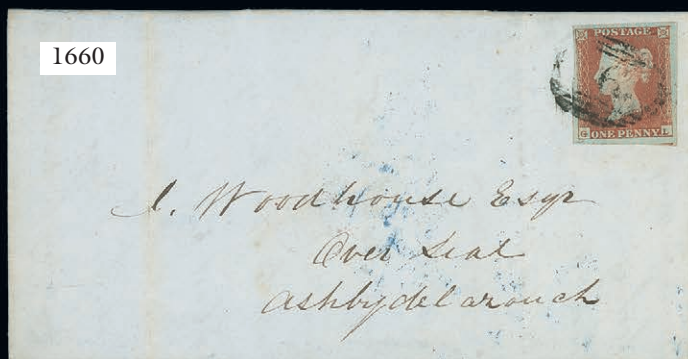 1660
POSTAGE
G ONE PENNY L
J. Woodhouse Esqr
Over Seal
Ashbydelazouch